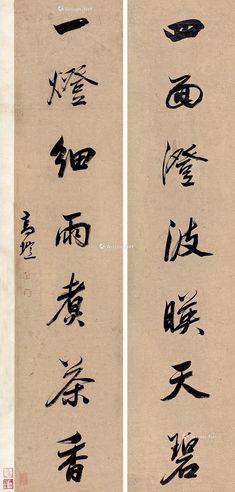 四面澄波暎天碧
一燈細雨煮茶香